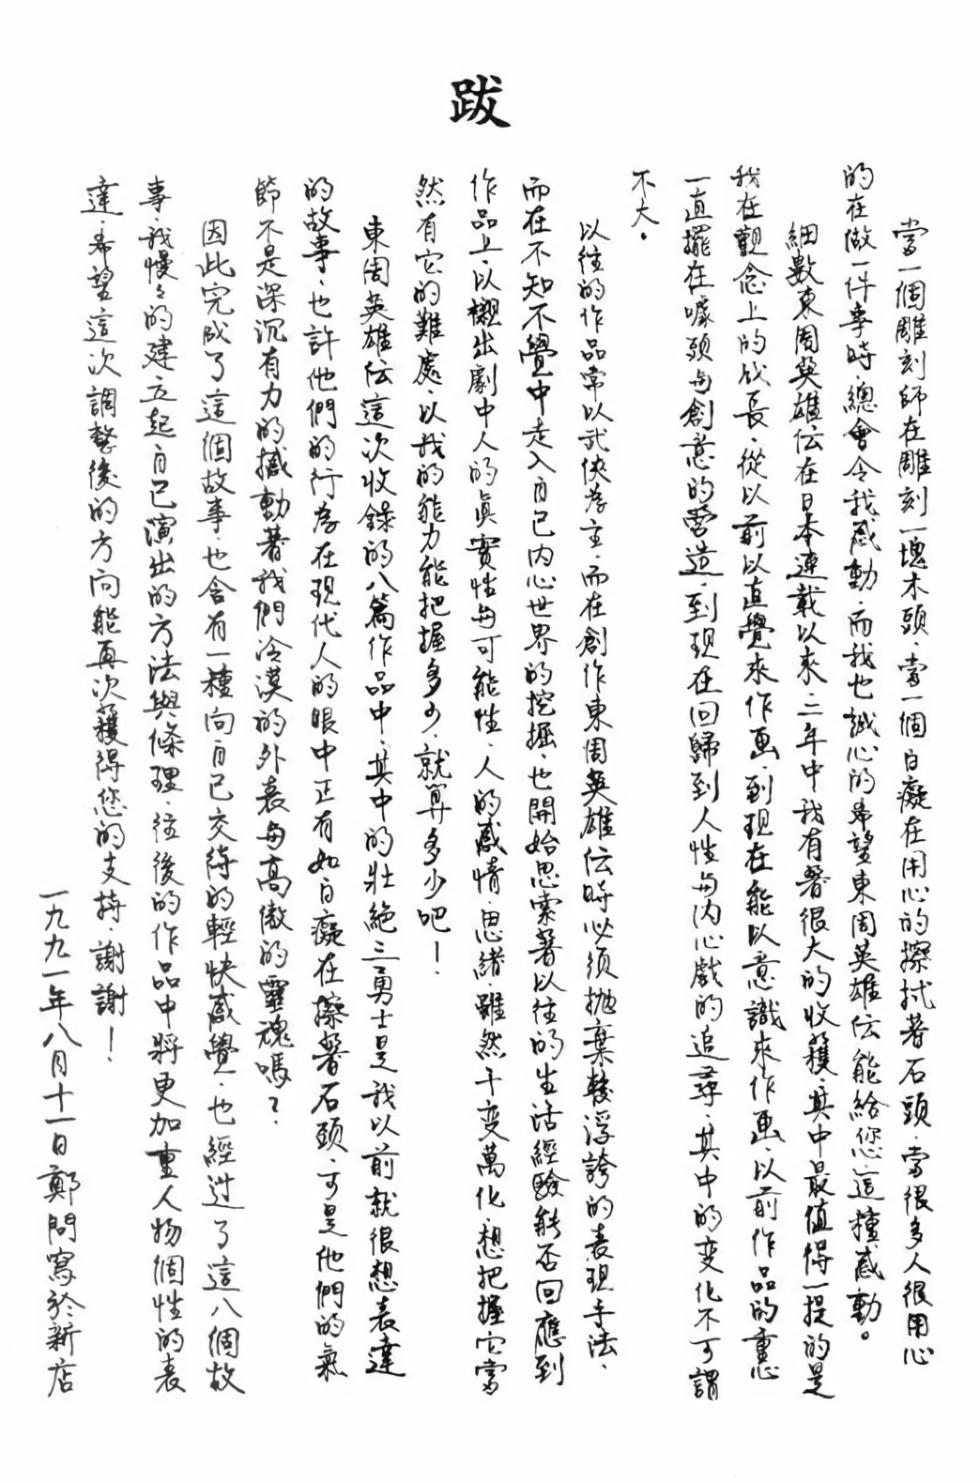 跋
當一個雕刻師在雕刻一塊木頭．當一個白癡在用心的擦拭著石頭．當很多人很用心
的在做一件事時總會令我感動．而我也誠心的希望東周英雄伝能給您這種感動。
細數東周英雄伝在日本連載以來．二年中我有著很大的收獲．其中最值得一提的是
我在觀念上的成長．從以前以直覺來作画．到現在能以意識來作画．以前作品的重心
一直擺在噱頭与創意的營造．到現在回歸到人性与內心戲的追尋．其中的变化不可謂
不大。
以往的作品常以武俠為主．而在創作東周英雄伝時必須拋棄較浮誇的表現手法．
而在不知不覺中走入自己內心世界的挖掘．也開始思索著以往的生活經驗能否回應到
作品上．以襯出劇中人的真實性与可能性．人的感情．思緒．雖然千变萬化．想把握它當
然有它的難處．以我的能力能把握多少．就算多少吧！
東周英雄伝這次收錄的八篇作品中．其中的壯絕三勇士是我以前就很想表達
的故事．也許他們的行為在現代人的眼中正有如白癡在擦著石頭．可是他們的氣
節不是深沉有力的撼動著我們冷漠的外表与高傲的靈魂嗎？
因此完成了這個故事．也含有一種向自己交待的輕快感覺．也經过了這八個故
事．我慢々的建立起自己演出的方法與條理．往後的作品中將更加重人物個性的表
達．希望這次調整後的方向能再次獲得您的支持．謝謝！
一九九一年八月十一日鄭問寫於新店